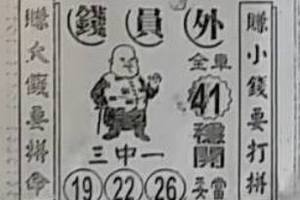 錢員外
賺小錢要打拼
全車
41
穩開
妥當
三中一
19 22 26
賺大錢要拼命